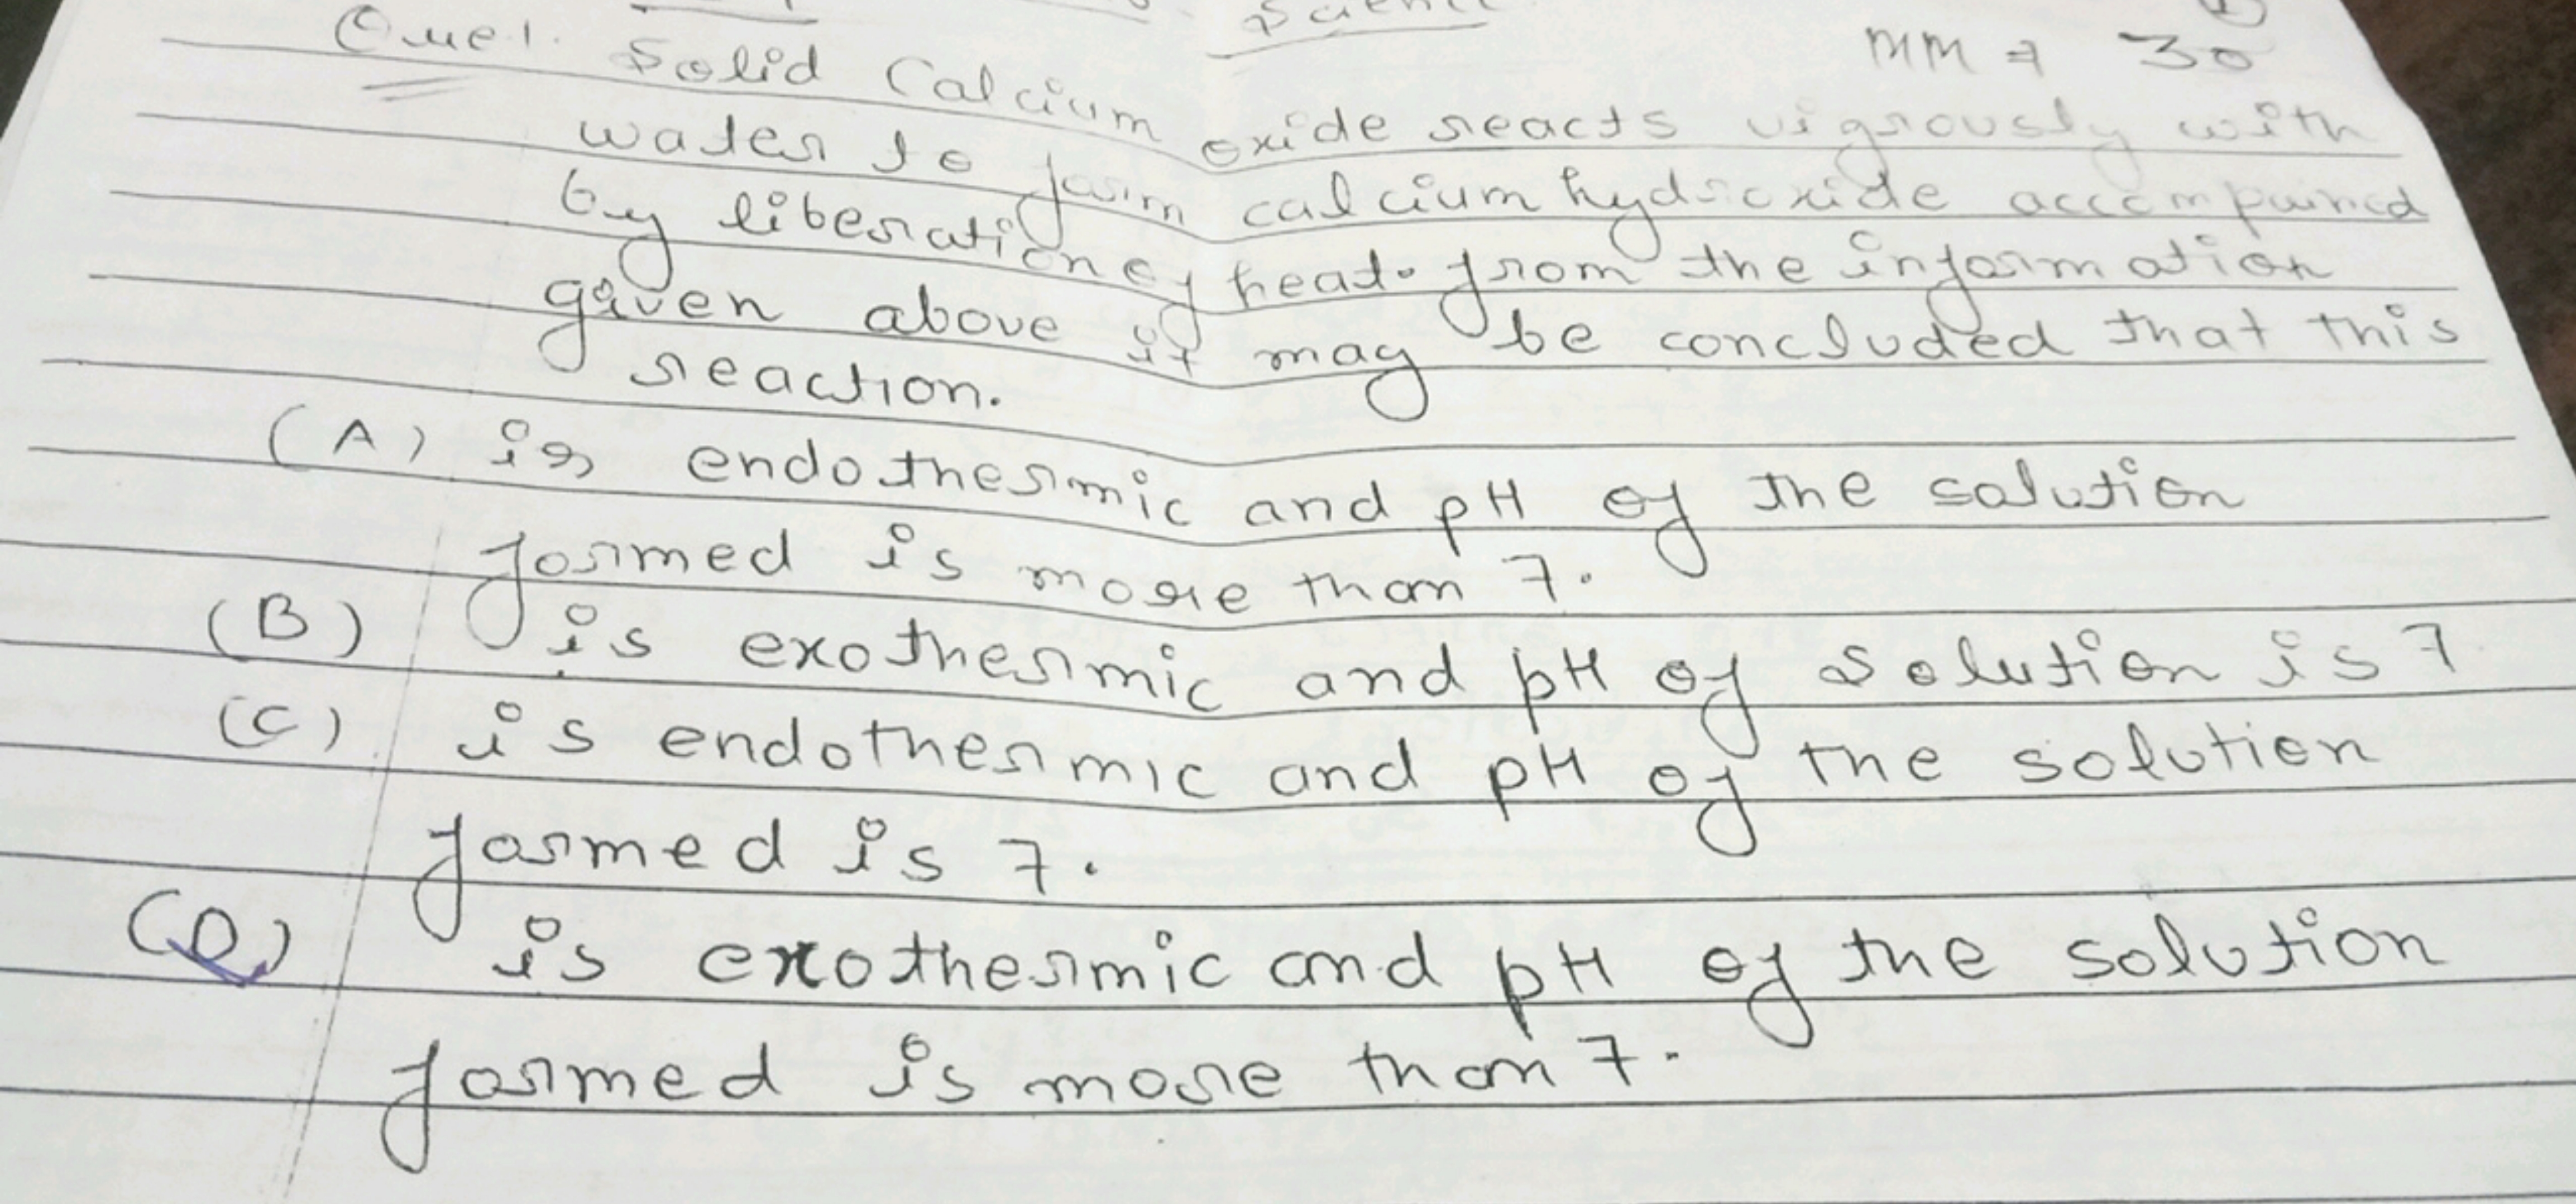 Science
MM = 30
Que1. Solid Calcium oxide reacts vigrously with
water to form calcium hydroxide accompained
by liberation of heat. from the information
given above it may be concluded that this
reaction.
(A) is endothermic and pH of the solution
formed is more than 7.
(B) is exothermic and pH of solution is 7
(C) is endothermic and pH of the solution
formed is 7.
(D) is exothermic and pH of the solution
formed is more than 7.